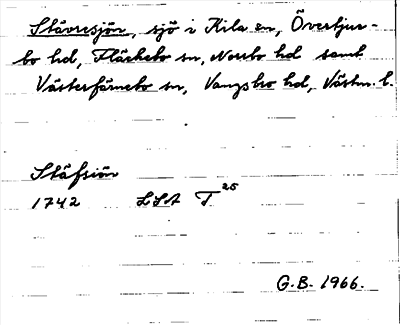 Stävresjön, sjö i Kila sn, Övertjur-
bo hd, Fläckebo sn, Norrbo hd samt
Västerfärnebo sn, Vangsbro hd, Västm. l.
Stäfsiön
1742 LSA T 25
G.B. 1966.